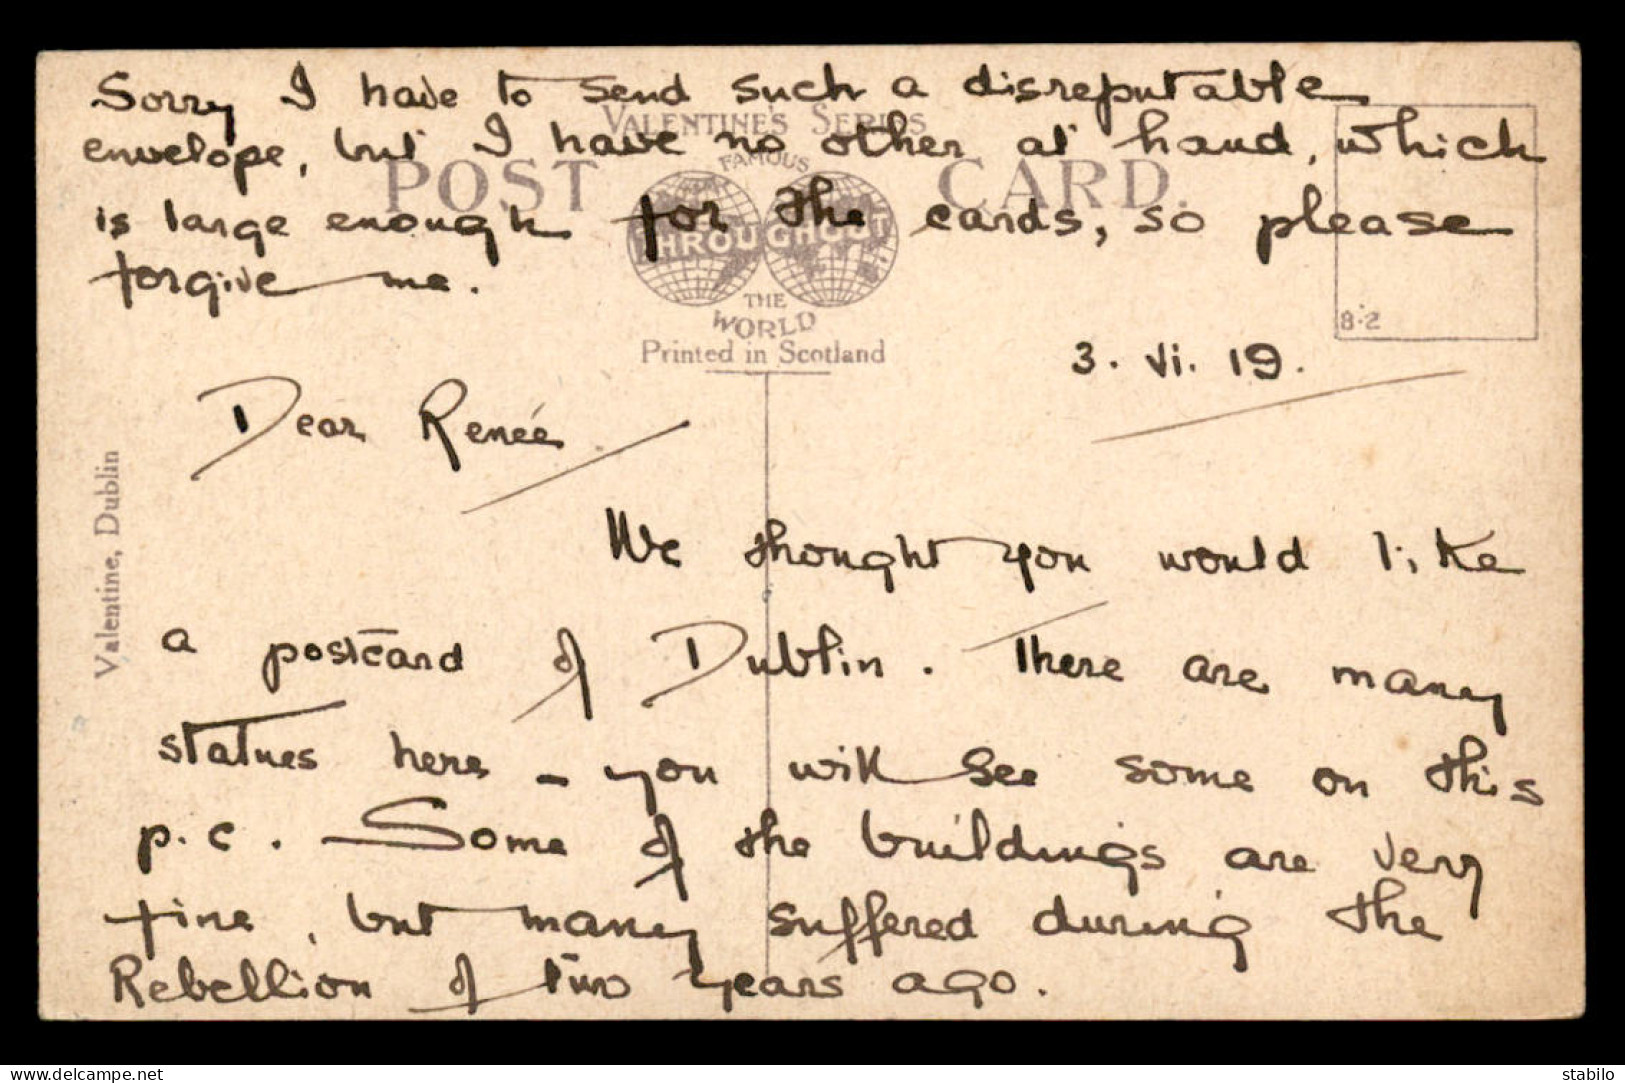 Sorry I have to send such a disreputable
VALENTINE'S SERIES
envelope, but I have no other at hand, which
POST CARD.
FAMOUS
is large enough for the cards, so please
THROUGHOUT
forgive me.
THE
WORLD
8.2
Printed in Scotland
3. vi. 19.
Dear Renée
Valentine, Dublin
We thought you would like
a postcard of Dublin. There are many
statues here – you will see some on this
p.c. Some of the buildings are very
fine, but many suffered during the
Rebellion of two years ago.
www.delcampe.net
stabilo